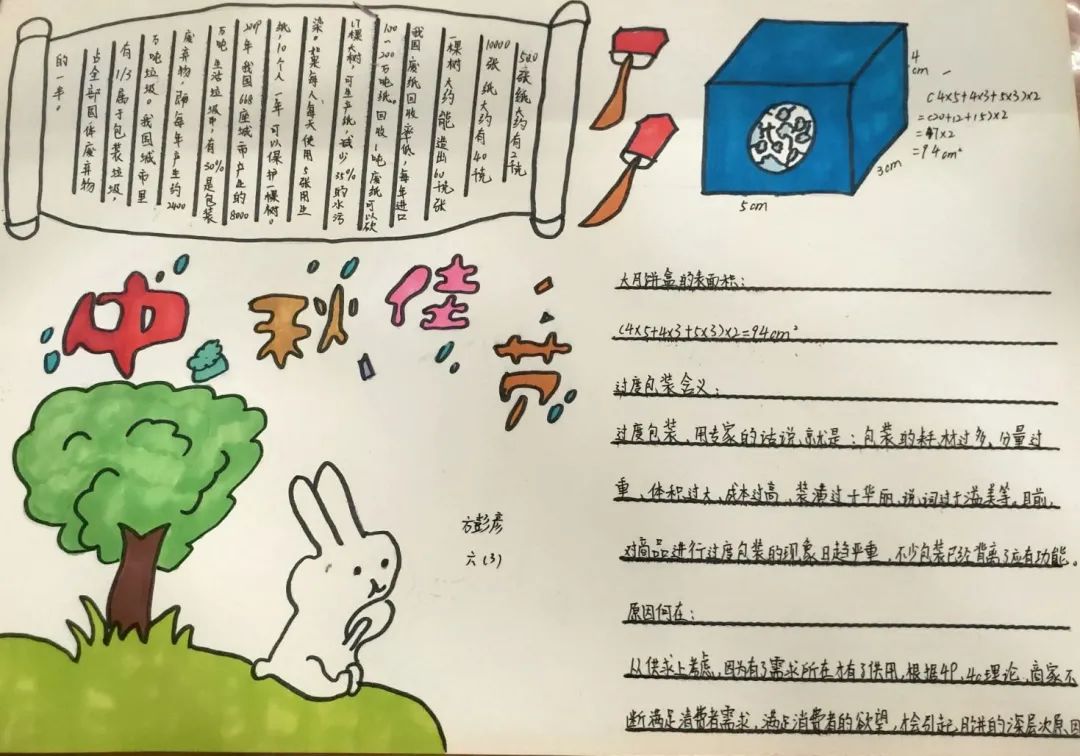 500张纸大约有2千克
10000张纸大约有40千克
一棵树大约能造出60千克张
我国废纸回收率低,每年进口
100—200万吨纸。回收1吨废纸可以砍
17棵大树,可生产纸,减少35%的水污
染。如果每人每天使用5张用生
纸,10个人一年可以保护一棵树。
2009年我国668座城市产生的8000
万吨生活垃圾中,有30%是包装
废弃物,即每年产生约2400
万吨垃圾。我国城市里
有1/3属于包装垃圾,
占全部固体废弃物
的一半。
4
cm
(4×5+4×3+5×3)×2
=(20+12+15)×2
=47×2
=94cm²
3cm
5cm
中秋佳节
大月饼盒的表面积:
(4×5+4×3+5×3)×2=94cm²
过度包装含义:
过度包装,用专家的话说,就是:包装的耗材过多、分量过
重、体积过大、成本过高、装潢过于华丽、说词过于溢美等,目前,
对商品进行过度包装的现象日趋严重,不少包装已经背离了应有功能。
原因何在:
从供求上考虑,因为有了需求所在才有了供用,根据4P、4C理论,商家不
断满足消费者需求,满足消费者的欲望,才会引起月饼的深层次原因
方彭彦
六(3)